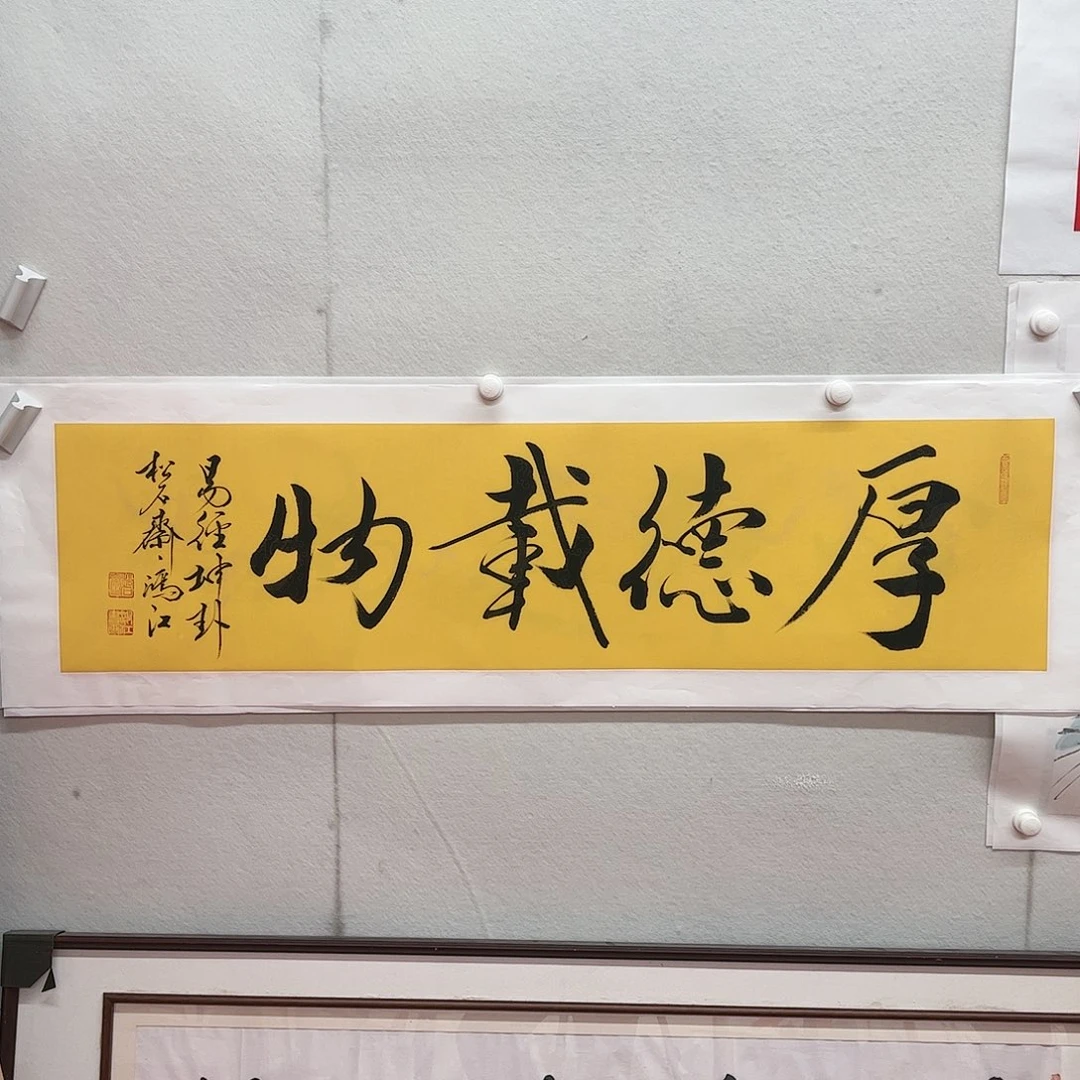 厚德載物
易經坤卦
松石齋鴻江